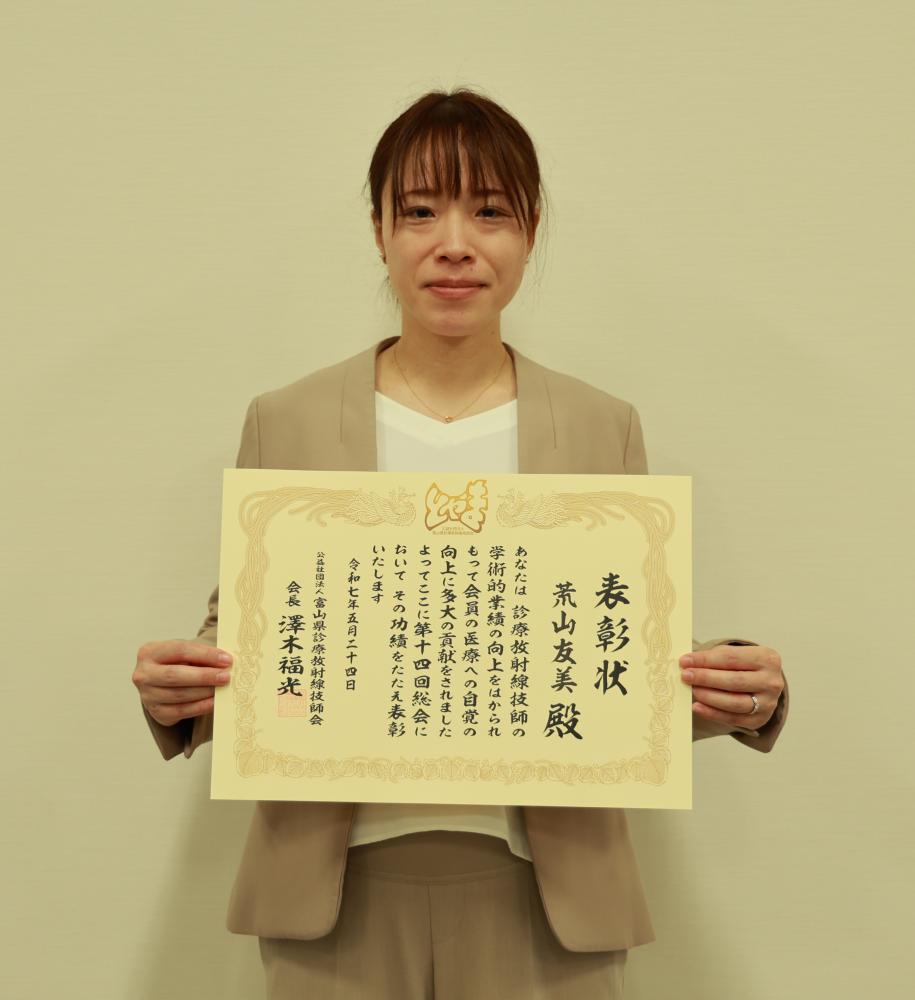 とやま
表彰状
荒山友美 殿
あなたは 診療放射線技師の
学術的業績の向上をはかられ
もって会員の医療への自覚の
向上に多大の貢献をされました
よってここに第十四回総会に
おいて その功績をたたえ表彰
いたします
令和七年五月二十四日
公益社団法人 富山県診療放射線技師会
会長 澤木福光